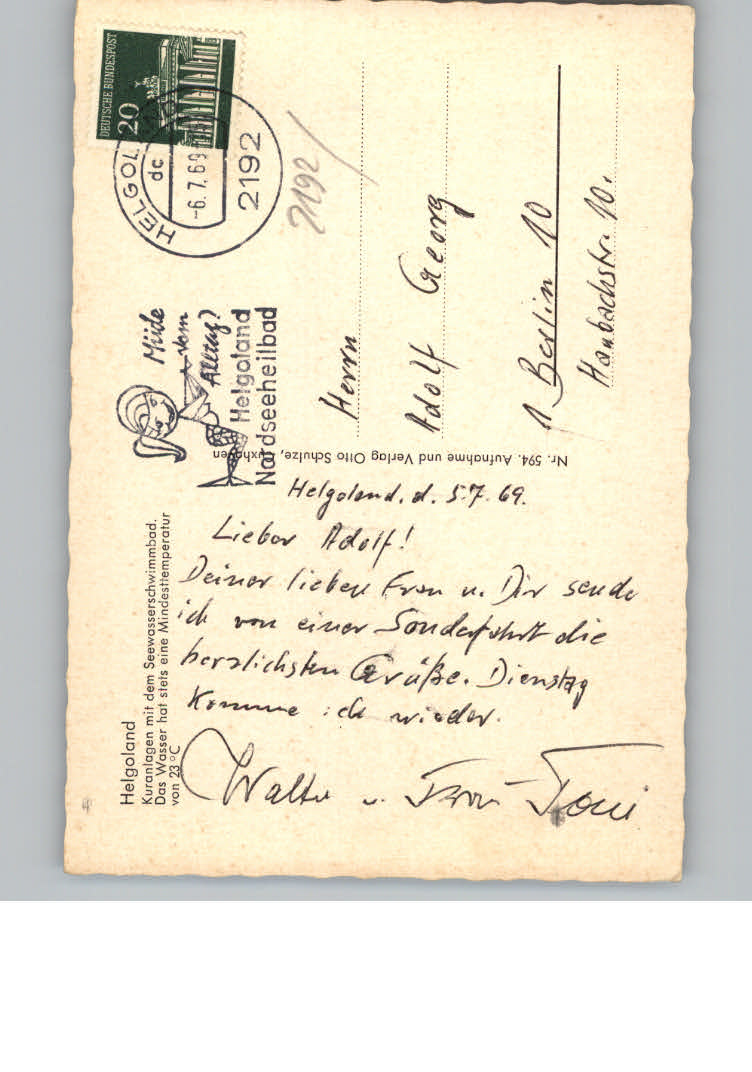 Helgoland
Kuranlagen mit dem Seewasserschwimmbad.
Das Wasser hat stets eine Mindesttemperatur
von 23 °C
Helgoland, d. 5.7.69.
Lieber Adolf!
Deiner lieben Frau u. Dir sende
ich von einer Sonderfahrt die
herzlichsten Grüße. Dienstag
komme ich wieder.
Walter u. Frau Toni
Nr. 594. Aufnahme und Verlag Otto Schulze, Cuxhaven
Müde
vom
Alltag?
Helgoland
Nordseeheilbad
DEUTSCHE BUNDESPOST
20
dc
-6.7.69
2192
2192
Herrn
Adolf Georg
1 Berlin 10